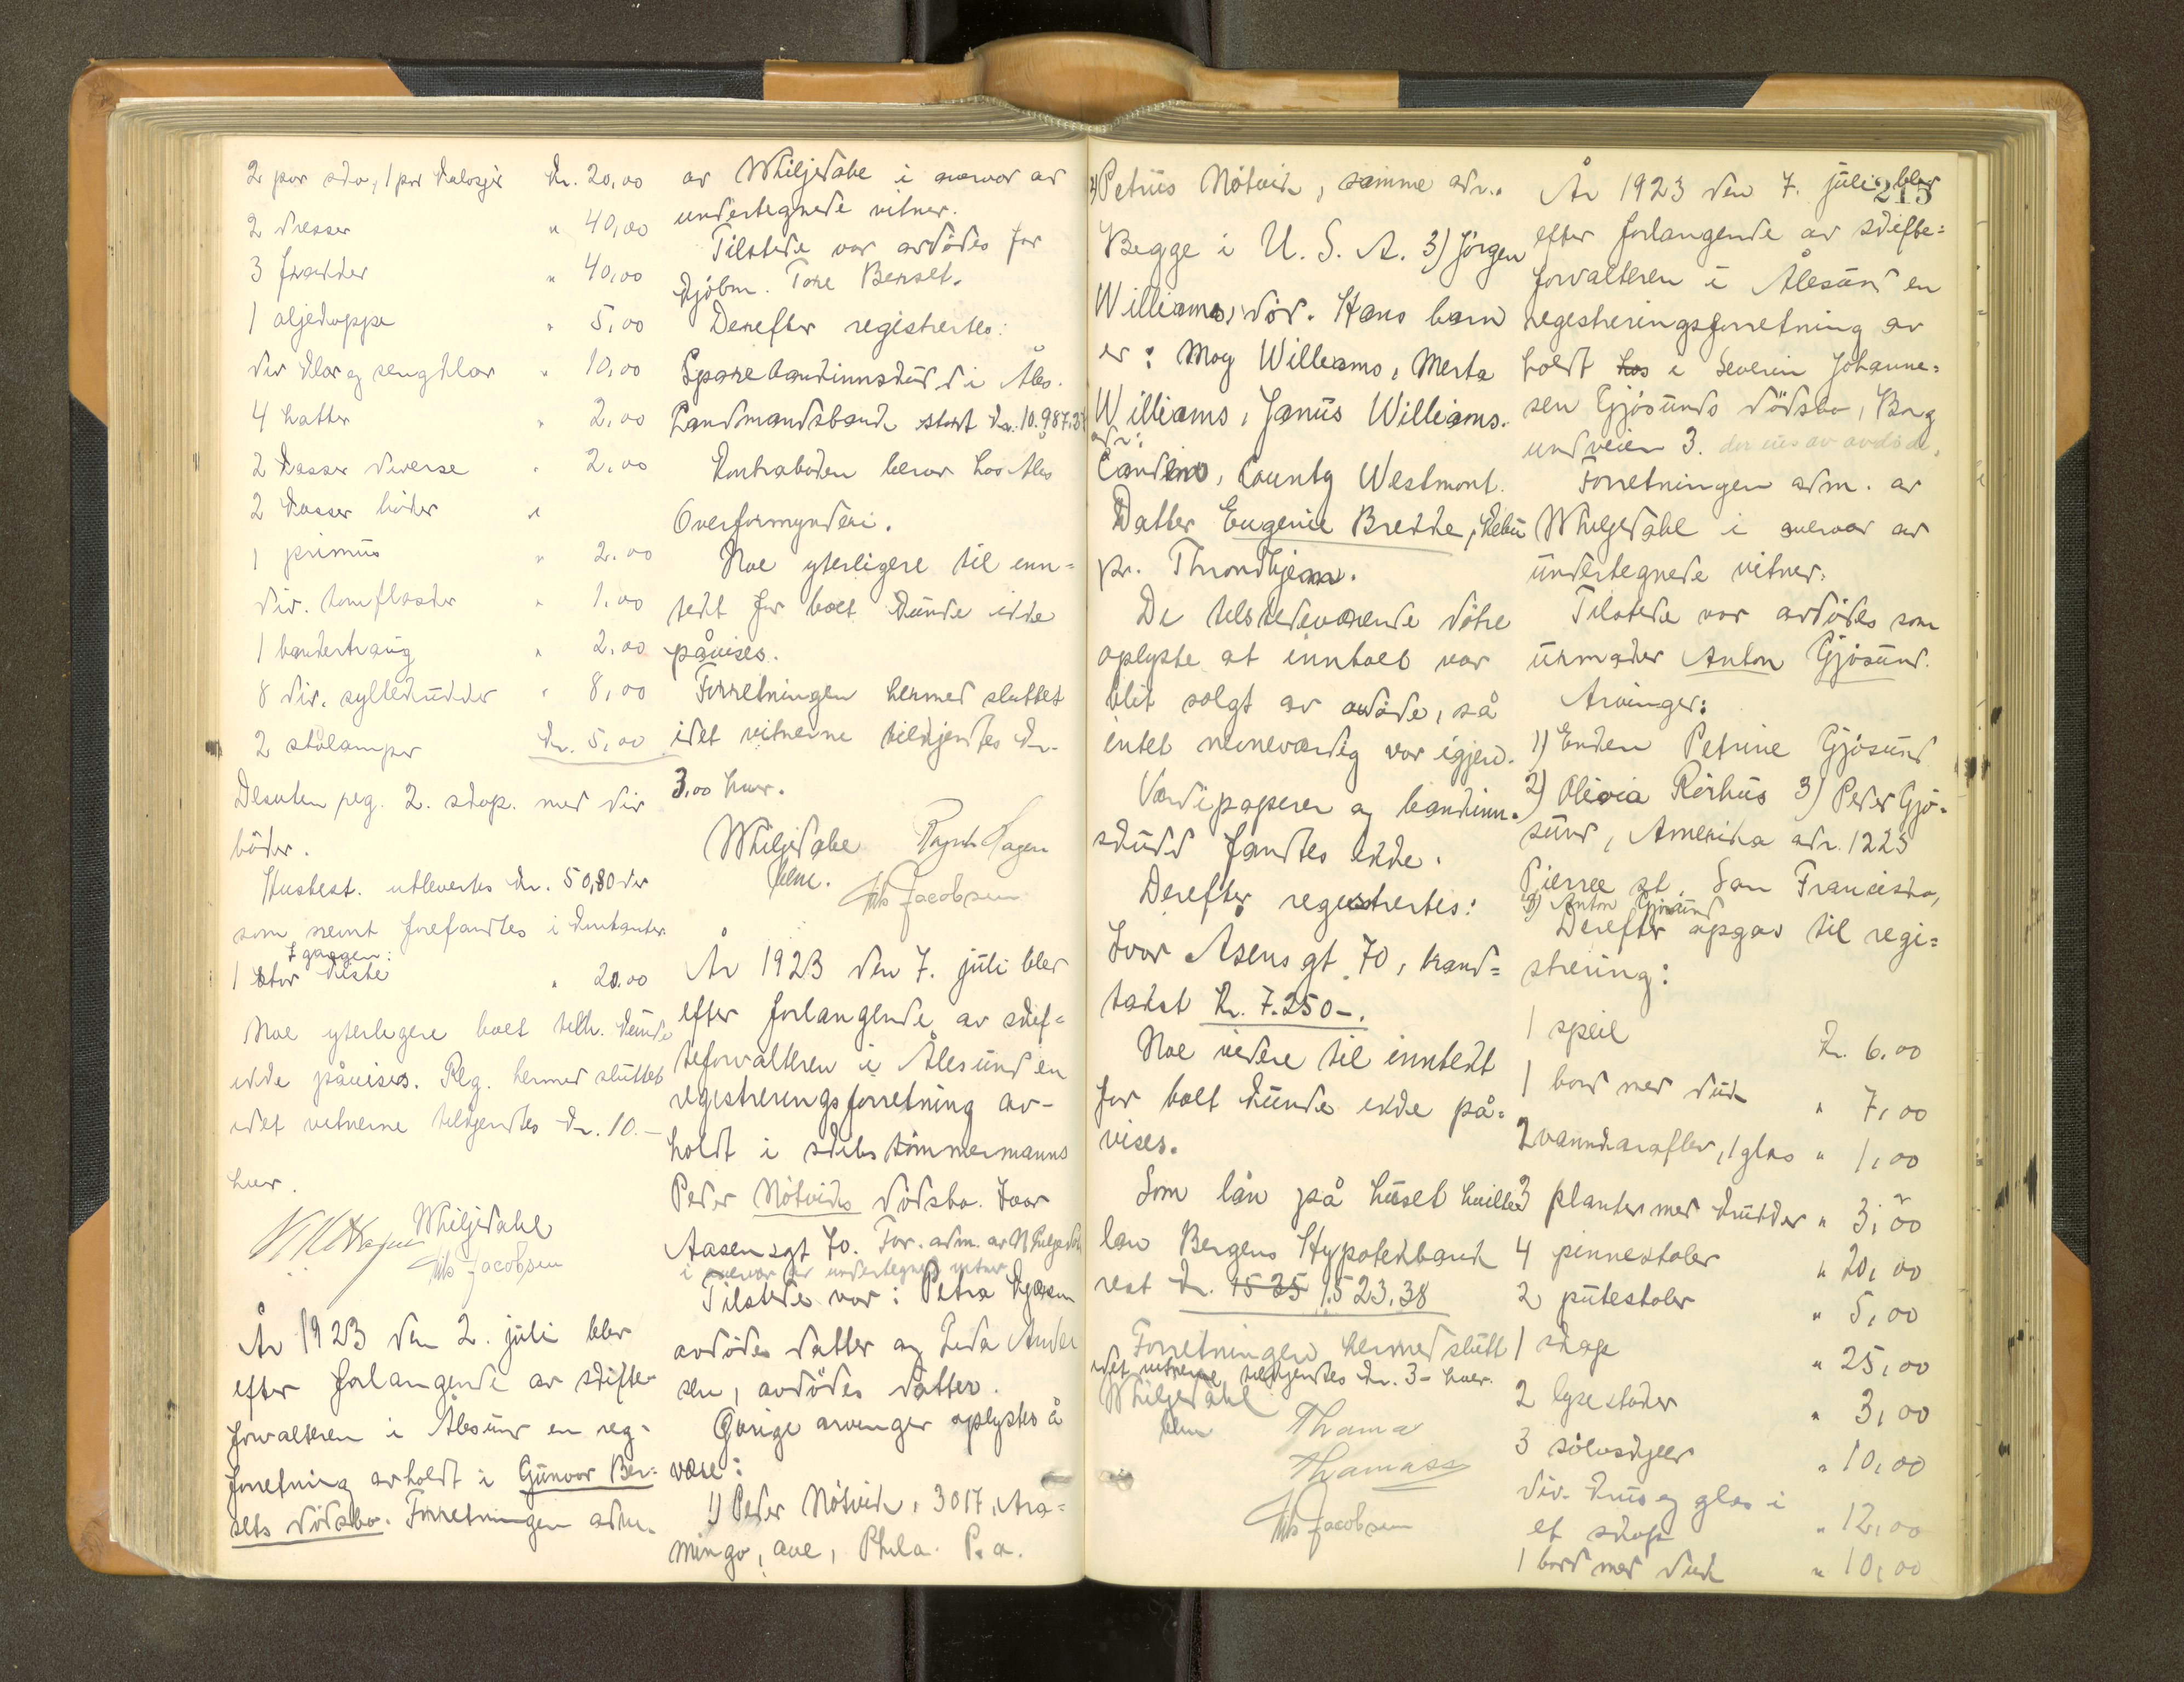 2 par sko, 1 par kalosjer kr. 20,00
2 dresser " 40,00
3 frakker " 40,00
1 oljekappe " 5,00
div klær og sengklær " 10,00
4 hatter " 2,00
2 kasser diverse " 2,00
2 kasser bøker "
1 primus " 2.00
div. tomflasker " 1.00
1 " 2.00
8 div. syltekrukker " 8,00
2 stålamper kr. 5,00
Desuten reg. 2. skap. med div
bøker.
Husbest. utlevertes kr. 50,80
som kontanter.
I gangen:
1 stor kiste " 20.00
Noe yterligere boet tilh. kunde
ikke påvises. Reg. hermed sluttet
idet vitnerne tilkjendtes kr. 10.-
hver.
Whiljedahl
Jacobsen
År 1923 den 2. juli blev
efter forlangende av skifte-
forvalteren i Ålesund en reg-
forretning avholdt i Gunvor Ber-
sets dödsbo. Forretningen adm.
av Whiljedahl i nærvær av
undertegnede vitner.
Tilstede var avdödes far
kjöbm. Tore Berset.
Derefter registrertes:
Sparebankinnskudd i Åles.
Landmandsbank stort kr. 10.987,37
Kontraboken beror hos Åles
Overformynderi.
Noe yterligere til inn-
tekt for boet kunde ikke
påvises.
Forretningen hermed sluttet
idet vitnerne tilkjendtes kr.
3,00 hver.
Whiljedahl Hagen
Jacobsen
År 1923 den 7. juli blev
efter forlangende av skif-
teforvalteren i Ålesund en
registreringsforretning av-
holdt i skibstömmermanns
Peder Nötviks dödsbo. Ivar
Aasensgt 70. For. adm. av Whiljedahl
i nærvær av undertegnede vitner
Tilstede var: Petra
avdödes datter og Ander
sen, avdödes datter.
Övrige arvinger oplystes å
være:
1) Peder Nötvik, 3017, Ara-
mingo, ave, Phila. P.a.
2) Petrus Nötvik, samme adr..
Begge i U. S. A. 3) Jörgen
Williams, död. Hans barn
er: May Williams, Merta
Williams, Janus Williams.
adr:
Camden, County Westmont.
Datter Eugenie Brekke,
pr. Throndhjem.
De tilstedeværende dötre
oplyste at innboet var
blit solgt av avdöde, så
intet neneværdig var igjen.
Værdipaperer og bankinn-
skudd fandtes ikke.
Derefter registrertes:
Ivar Åsens gt. 70, brand-
takst kr. 7.250-.
Noe videre til inntekt
for boet kunde ikke på-
vises.
Som lån på huset hviller
lån Bergens Hypotekbank
rest kr. 1525 1.523.38
Forretningen hermed slutt
idet vitnerne tilkjendtes kr. 3- hver.
Whiljedahl
Thama
Thamass
Jacobsen
215
År 1923 den 7. juli blev
efter forlangende av skifte-
forvalteren i Ålesund en
registreringsforretning av
holdt hos i Severin Johanne-
sen Gjösunds dödsbo, Borg
undveien 3.
Forretningen adm. av
Whiljedahl i nærvær av
undertegnede vitner.
Tilstede var avdödes sön
urmaker Anton Gjösund.
Arvinger:
1) Enken Petrine Gjösund
2) Olivia Rörhus 3) Peder Gjö-
sund, Amerika adr. 1225
Pierree st. San Francisko,
4) Anton Gjösund
Derefter opgav til regi-
strering:
1 speil kr. 6.00
1 bord med duk " 7,00
2 vannkarafler, 1 glas " 1,00
3 planter med krukker " 3,00
4 pinnestoler " 20,00
2 putestoler " 5,00
1 skap " 25,00
2 lysestaker " 3,00
3 sölvskjeer " 10,00
div. krus og glas i
et skap " 12,00
1 bord med duk " 10,00